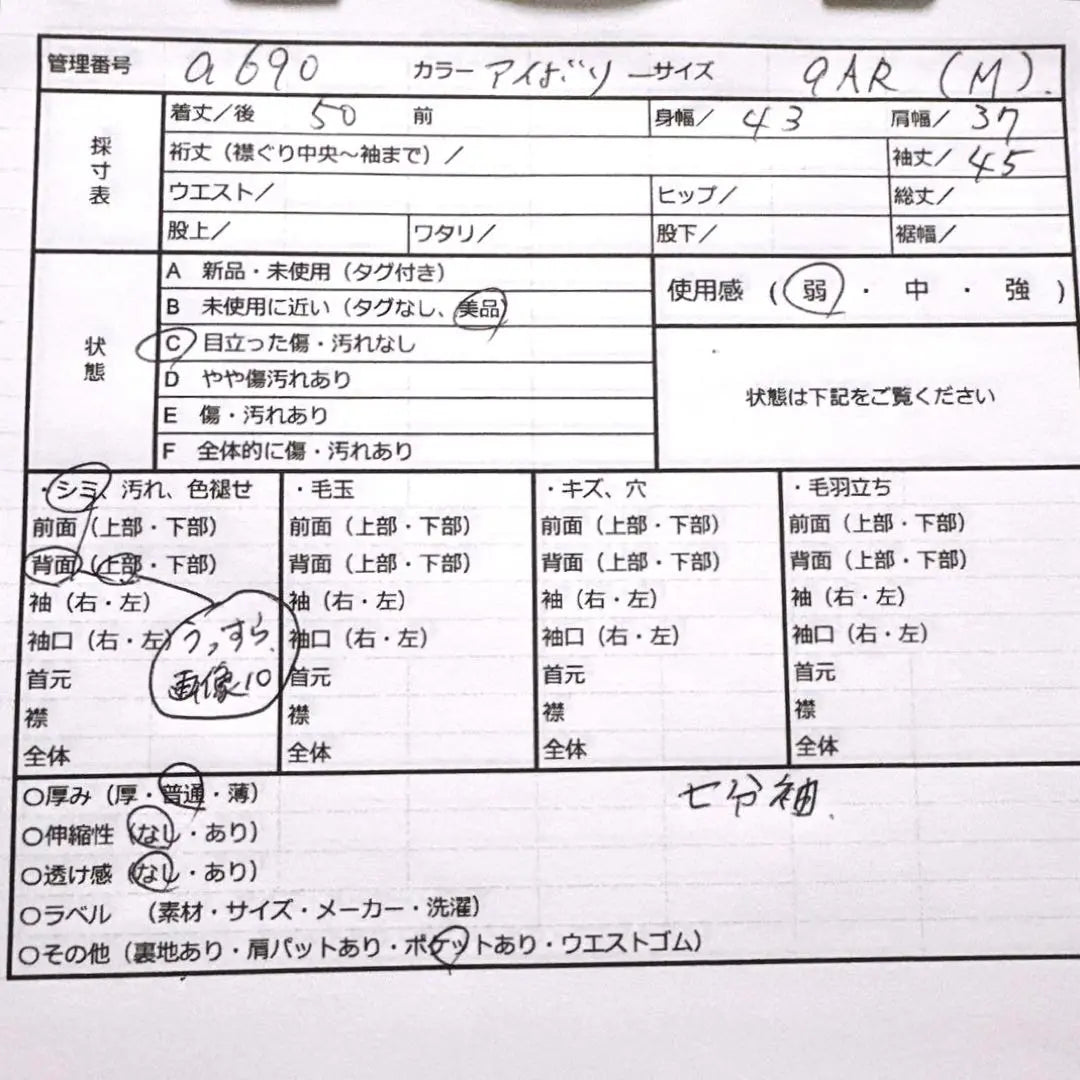 管理番号 a690 カラー アイボリー サイズ 9AR (M).
採寸表
着丈／後 50 前 身幅／ 43 肩幅／ 37
裄丈（襟ぐり中央～袖まで）／ 袖丈／ 45
ウエスト／ ヒップ／ 総丈／
股上／ ワタリ／ 股下／ 裾幅／
状態
A 新品・未使用（タグ付き）
B 未使用に近い（タグなし、美品）
C 目立った傷・汚れなし
D やや傷汚れあり
E 傷・汚れあり
F 全体的に傷・汚れあり
使用感 （ 弱 ・ 中 ・ 強 ）
状態は下記をご覧ください
・シミ、汚れ、色褪せ
前面（上部・下部）
背面（上部・下部）
袖（右・左）
袖口（右・左）
首元
襟
全体
うっすら、
画像10
・毛玉
前面（上部・下部）
背面（上部・下部）
袖（右・左）
袖口（右・左）
首元
襟
全体
・キズ、穴
前面（上部・下部）
背面（上部・下部）
袖（右・左）
袖口（右・左）
首元
襟
全体
・毛羽立ち
前面（上部・下部）
背面（上部・下部）
袖（右・左）
袖口（右・左）
首元
襟
全体
○厚み（厚・普通・薄）
七分袖.
○伸縮性（なし・あり）
○透け感（なし・あり）
○ラベル （素材・サイズ・メーカー・洗濯）
○その他（裏地あり・肩パットあり・ポケットあり・ウエストゴム）